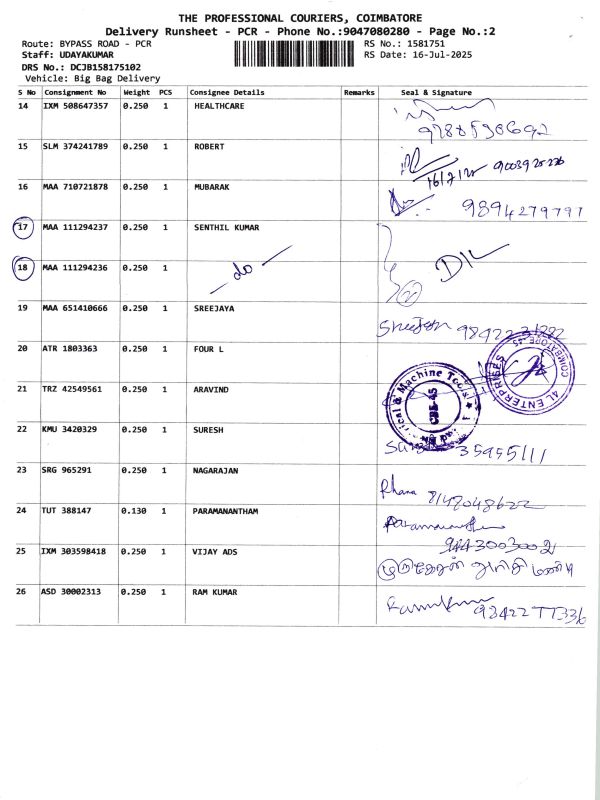 THE PROFESSIONAL COURIERS, COIMBATORE
Delivery Runsheet - PCR - Phone No.:9047080280 - Page No.:2
Route: BYPASS ROAD - PCR RS No.: 1581751
Staff: UDAYAKUMAR RS Date: 16-Jul-2025
DRS No.: DCJB158175102
Vehicle: Big Bag Delivery
S No Consignment No Weight PCS Consignee Details Remarks Seal & Signature
14 IXM 508647357 0.250 1 HEALTHCARE
15 SLM 374241789 0.250 1 ROBERT 16/7/25
16 MAA 710721878 0.250 1 MUBARAK 9894279797
17 MAA 111294237 0.250 1 SENTHIL KUMAR
18 MAA 111294236 0.250 1 - do - D/L
19 MAA 651410666 0.250 1 SREEJAYA
20 ATR 1803363 0.250 1 FOUR L 4L ENTERPRISES COIMBATORE-45
21 TRZ 42549561 0.250 1 ARAVIND & Machine Tools CBE-45
22 KMU 3420329 0.250 1 SURESH
23 SRG 965291 0.250 1 NAGARAJAN 8147048622
24 TUT 388147 0.130 1 PARAMANANTHAM
25 IXM 303598418 0.250 1 VIJAY ADS முருகேசன் அரிசி மண்டி
26 ASD 30002313 0.250 1 RAM KUMAR